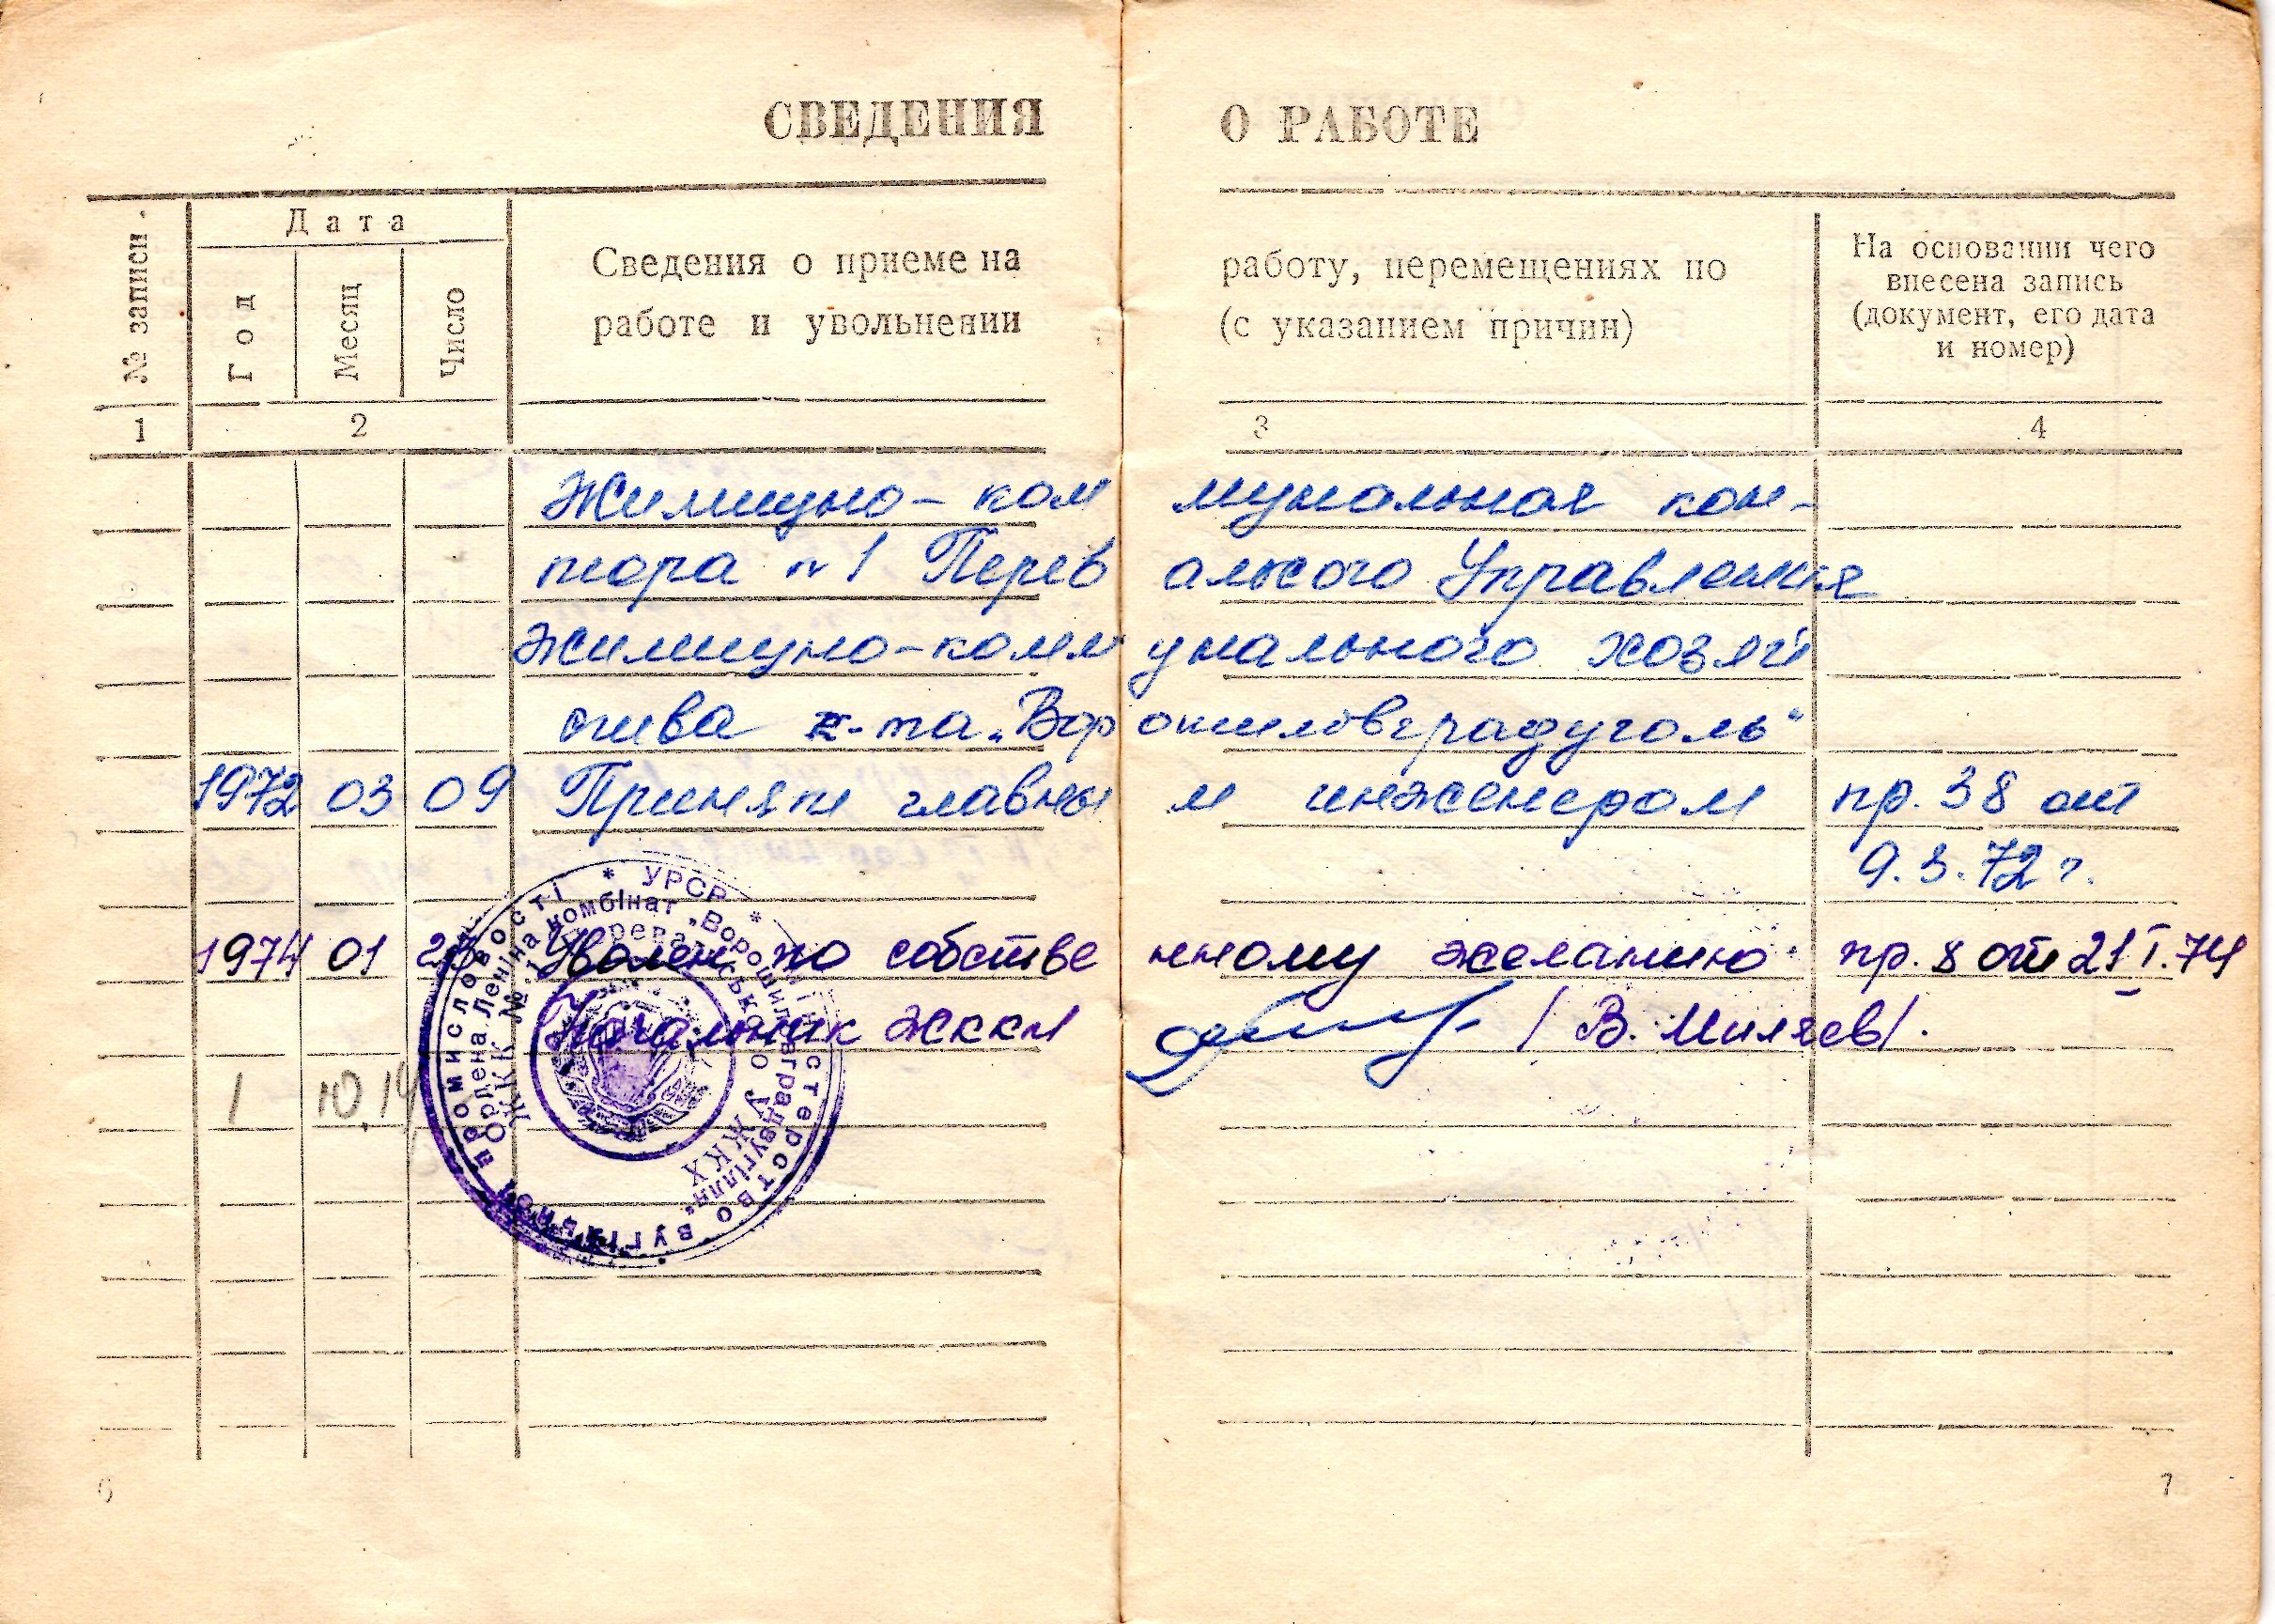 СВЕДЕНИЯ О РАБОТЕ
№ записи
Дата
Год
Месяц
Число
Сведения о приеме на работу, перемещениях по
работе и увольнении (с указанием причин)
На основании чего
внесена запись
(документ, его дата
и номер)
1 2 3 4
Жилищно-коммунальная кон-
тора №1 Перевальского Управления
жилищно-коммунального хозяй
ства к-та „Ворошиловградуголь“
1972 03 09 Принят главным инженером пр. 38 от
9.3.72 г.
1974 01 Уволен по собственному желанию пр. 8 от 21 I.74
Начальник ЖКК №1 / В. Миляев/.
1 10.14
* УРСР * Міністерство вугільної промисловості
Ордена Леніна комбінат „Ворошиловградвугілля“
ЖКК № 1 Перевальського УЖКХ
6 7